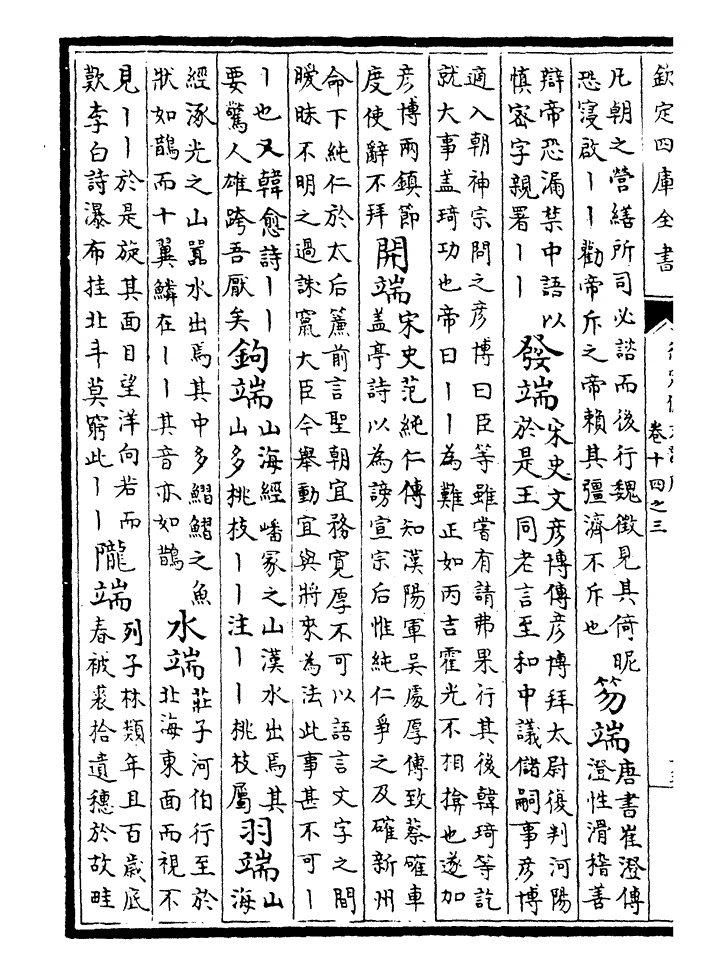 欽定四庫全書
卷十四之三
凡朝之營繕所司必諮而後行魏徵見其倚昵
恐寖啟丨丨勸帝斥之帝賴其彊濟不斥也
笏端
唐書崔澄傳
澄性滑稽善
辯帝恐漏禁中語以
慎密字親署丨丨
發端
宋史文彦博傳彦博拜太尉復判河陽
於是王同老言至和中議儲嗣事彦博
適入朝神宗問之彦博曰臣等雖嘗有請弗果行其後韓琦等訖
就大事盖琦功也帝曰丨丨為難正如丙吉霍光不相揜也遂加
彦博兩鎮節
度使辭不拜
開端
宋史范純仁傳知漢陽軍吳處厚傳致蔡確車
盖亭詩以為謗宣宗后惟純仁爭之及確新州
命下純仁於太后簾前言聖朝宜務寛厚不可以語言文字之間
曖昧不明之過誅竄大臣今舉動宜與將來為法此事甚不可丨
丨也又韓愈詩丨丨
要驚人雄跨吾厭矣
鉤端
山海經嶓冢之山漢水出焉其
山多桃枝丨丨注丨丨桃枝屬
羽端
山
海
經涿光之山嚻水出焉其中多鰼鰼之魚
狀如鵲而十翼鱗在丨丨其音亦如鵲
水端
莊子河伯行至於
北海東面而視不
見丨丨於是旋其面目望洋向若而
歎李白詩瀑布挂北斗莫窮此丨丨
隴端
列子林類年且百歲底
春被裘拾遺穗於故畦